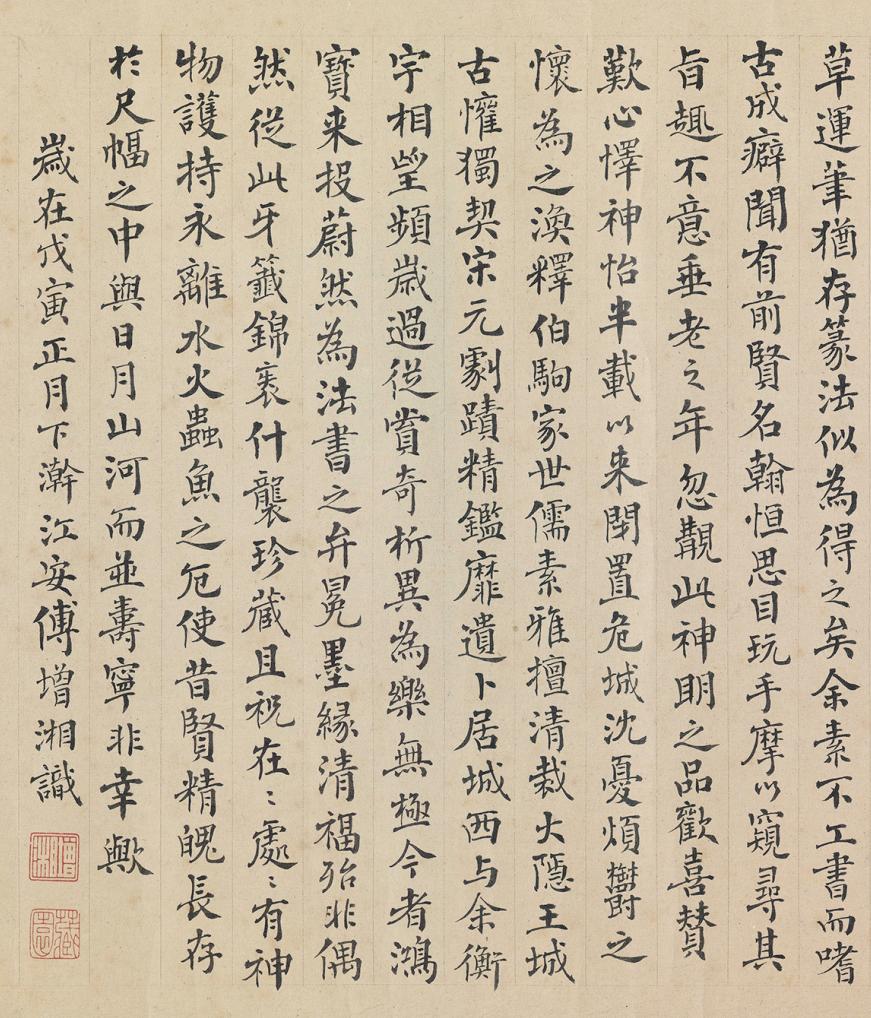 草運筆猶存篆法似為得之矣余素不工書而嗜
古成癖聞有前賢名翰恒思目玩手摩以窺尋其
旨趣不意垂老之年忽覩此神明之品歡喜贊
歎心懌神怡半載以来閉置危城沈憂煩鬱之
懷為之渙釋伯駒家世儒素雅擅清裁大隱王城
古懽獨契宋元劇蹟精鑑靡遺卜居城西与余衡
宇相望頻歲過從賞奇析異為樂無極今者鴻
寶来投蔚然為法書之弁冕墨緣清福殆非偶
然從此牙籤錦裹什襲珍藏且祝在〻處〻有神
物護持永離水火蟲魚之厄使昔賢精魄長存
於尺幅之中與日月山河而並壽寧非幸歟
歲在戊寅正月下澣江安傅增湘識
增湘
藏園